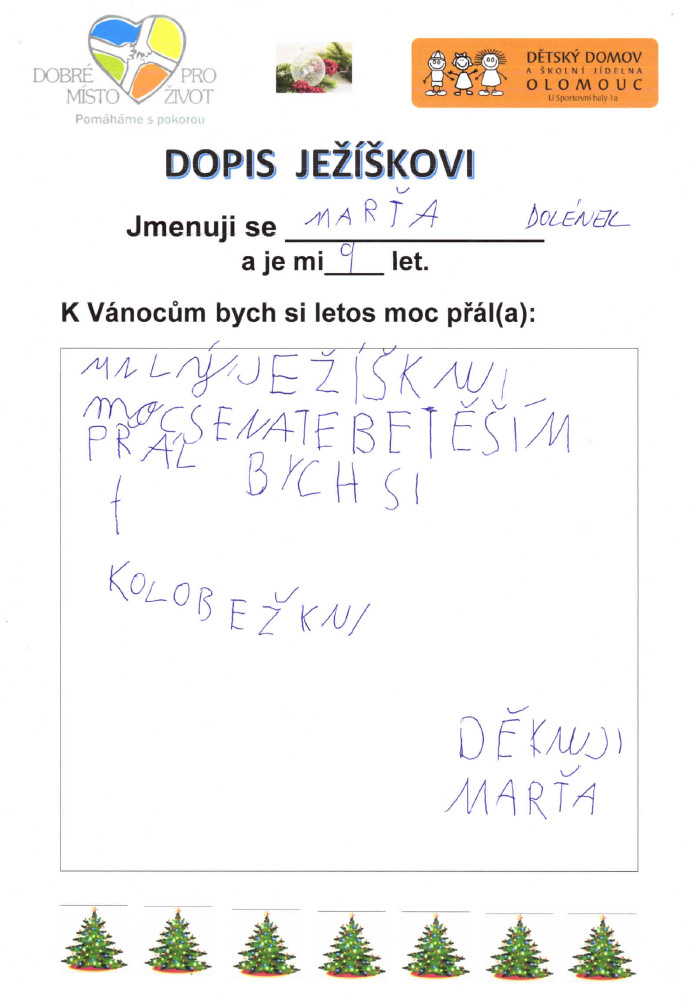 DOBRÉ PRO
MÍSTO ŽIVOT
Pomáháme s pokorou
DĚTSKÝ DOMOV
A ŠKOLNÍ JÍDELNA
OLOMOUC
U Sportovní haly 1a
DOPIS JEŽÍŠKOVI
Jmenuji se MARŤA DOLÉNEK
a je mi 9 let.
K Vánocům bych si letos moc přál(a):
MILÝ JEŽÍŠKU
MOC SE NA TEBE TĚŠÍM
PŘÁL BYCH SI
KOLOBEŽKU
DĚKUJI
MARŤA